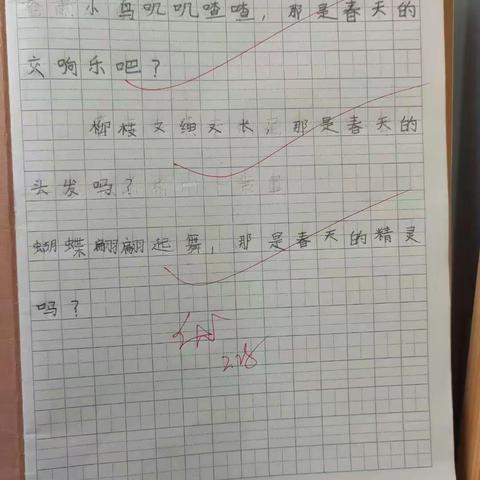 小鸟叽叽喳喳，那是春天的
交响乐吧？
柳枝又细又长，那是春天的
头发吗？
蝴蝶翩翩起舞，那是春天的精灵
吗？